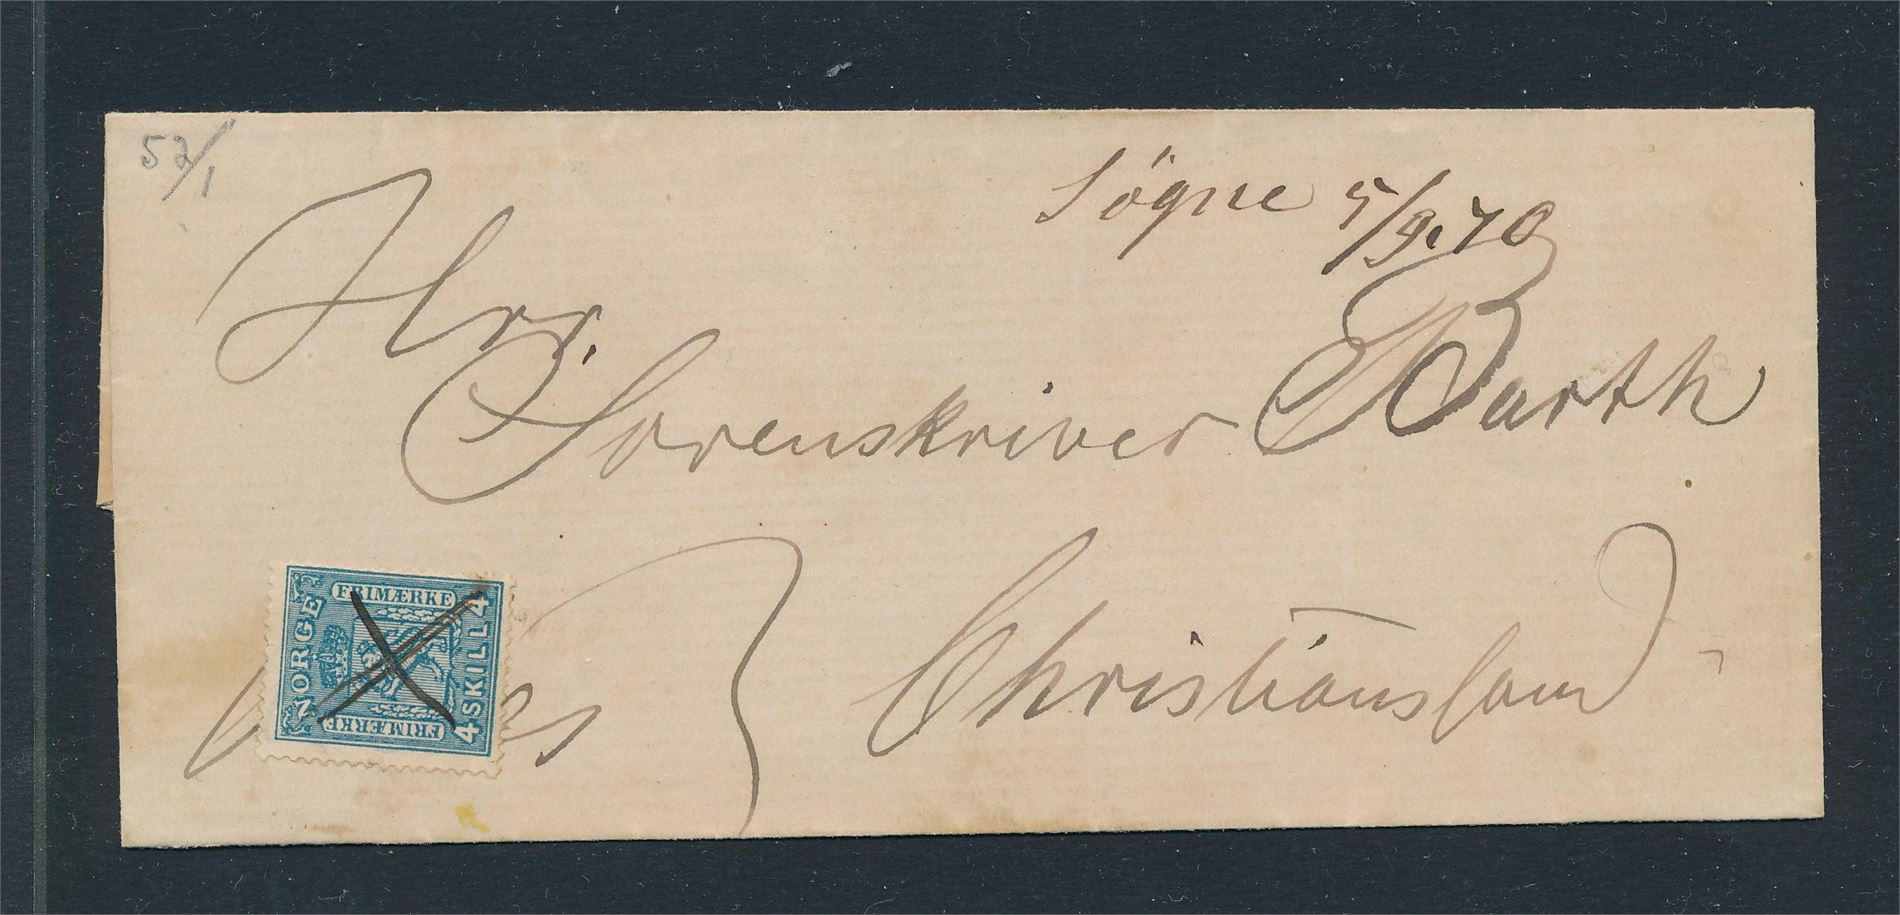 52/1
Søgne 5/9.70
Hrr.
Sorenskriver Barth
Christianssand
FRIMÆRKE
NORGE
4 SKILL 4
FRIMÆRKE